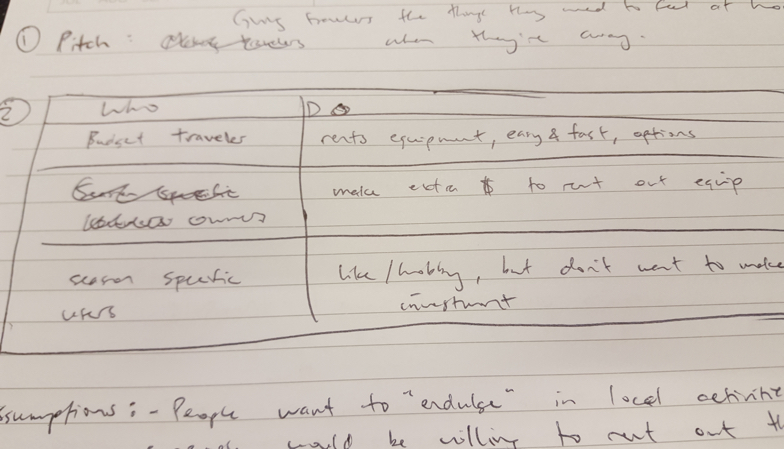 Giving travelers the things they need to feel at ho
① Pitch : when they're away.
② Who Do
Budget traveler rents equipment, easy & fast, options
make extra $ to rent out equip
owners
season specific like/hobby, but don't want to make
users investment
ssumptions : - People want to "endulge" in local activitie
people would be willing to rent out th